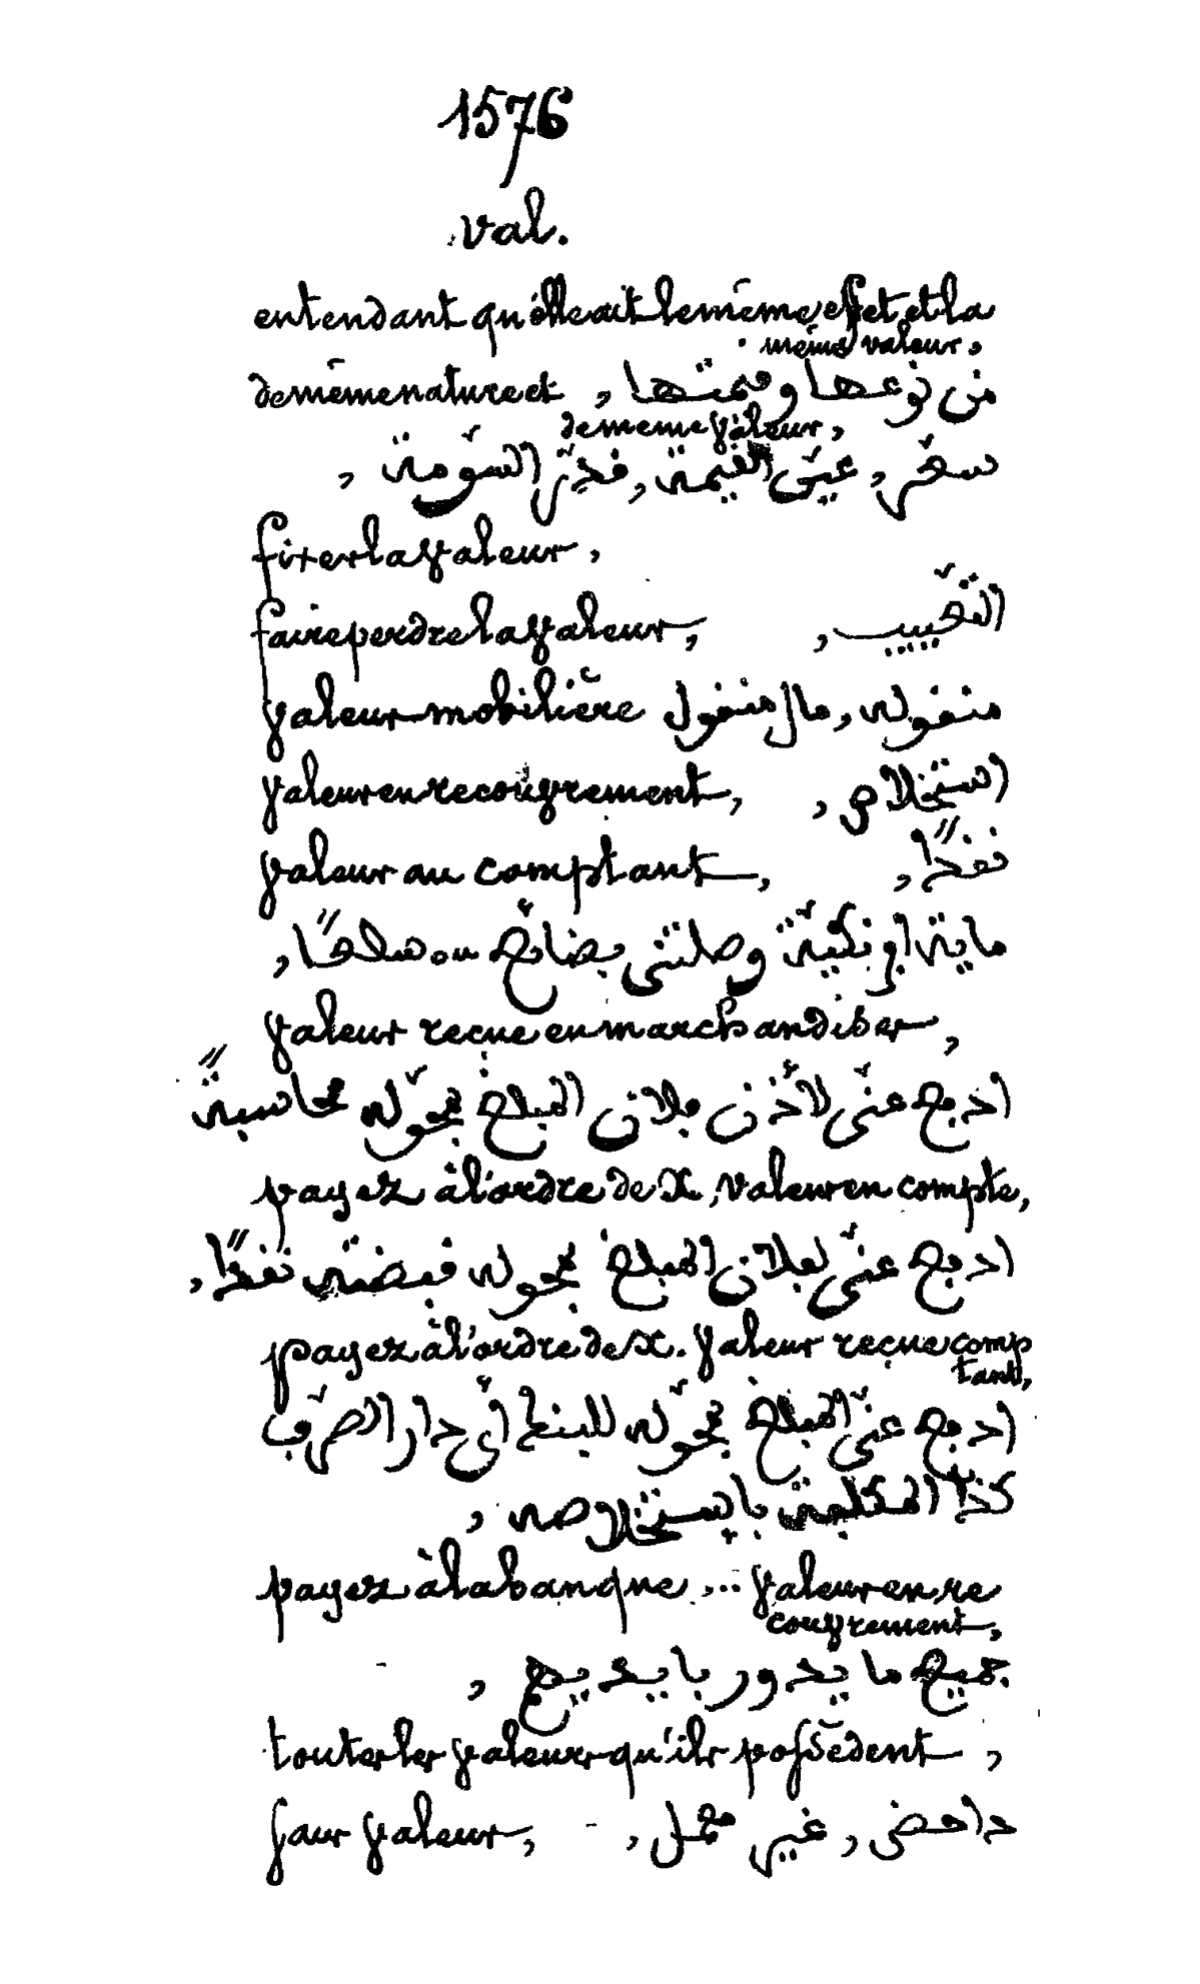 1576
val.
entendant qu'elle ait le même effet et la
même valeur,
de même nature et من نوعها وقيمتها,
de même valeur,
سعّر, عيّن القيمة, قدّر السّومة,
fixer la valeur,
faire perdre la valeur, التعّييب,
valeur mobilière منقوله, مال منقول
valeur en recouvrement, استخلاص,
valeur au comptant, نقدًا,
ماية وصلتنى بضايع ou سلعًا,
valeur reçue en marchandises,
ادفع عنّى لأذن فلان المبلغ محوّله محاسبةً
payez à l'ordre de X, valeur en compte,
ادفع عنّى لفلان المبلغ محوله قبضته نقدًا,
payez à l'ordre de X. valeur reçue comp
tant,
ادفع عنّى المبلغ محوّله للبنك أى دار الصرف
كذا المكلفة باستخلاصه,
payez à la banque ... valeur en re
couvrement,
جميع ما يدور بايديهم,
toutes les valeurs qu'ils possèdent,
sans valeur, داحض, غير,